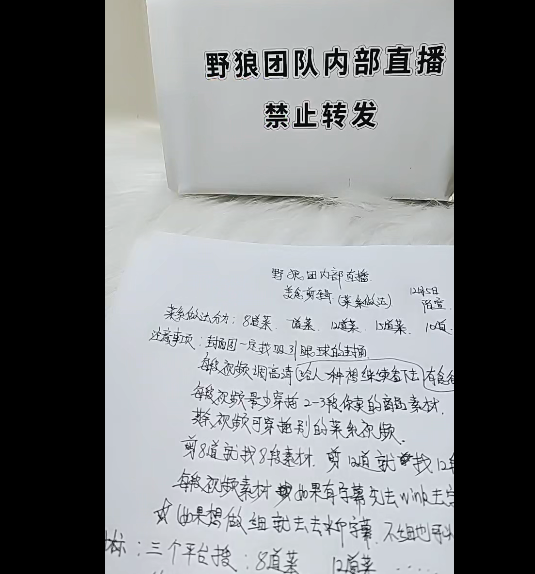 野狼团队内部直播
禁止转发
野狼团内部直播
美食剪辑(菜系做法)
12月5日
菜系做法分为: 8道菜 道菜 12道菜 15道菜 10道
注意事项: 封面图一定找吸引眼球的封面
每段视频调高清 给人一种想继续看下去 有食
每段视频最少穿插2-3段你卖的商品素材.
其余视频可穿插别的菜系视频.
剪8道就找8段素材. 剪12道就找12段
每段视频素材 如果有字幕先去wink去字
☆如果想做 组就去去掉字幕. 不组也可以
标: 三个平台搜: 8道菜 12道菜 ......